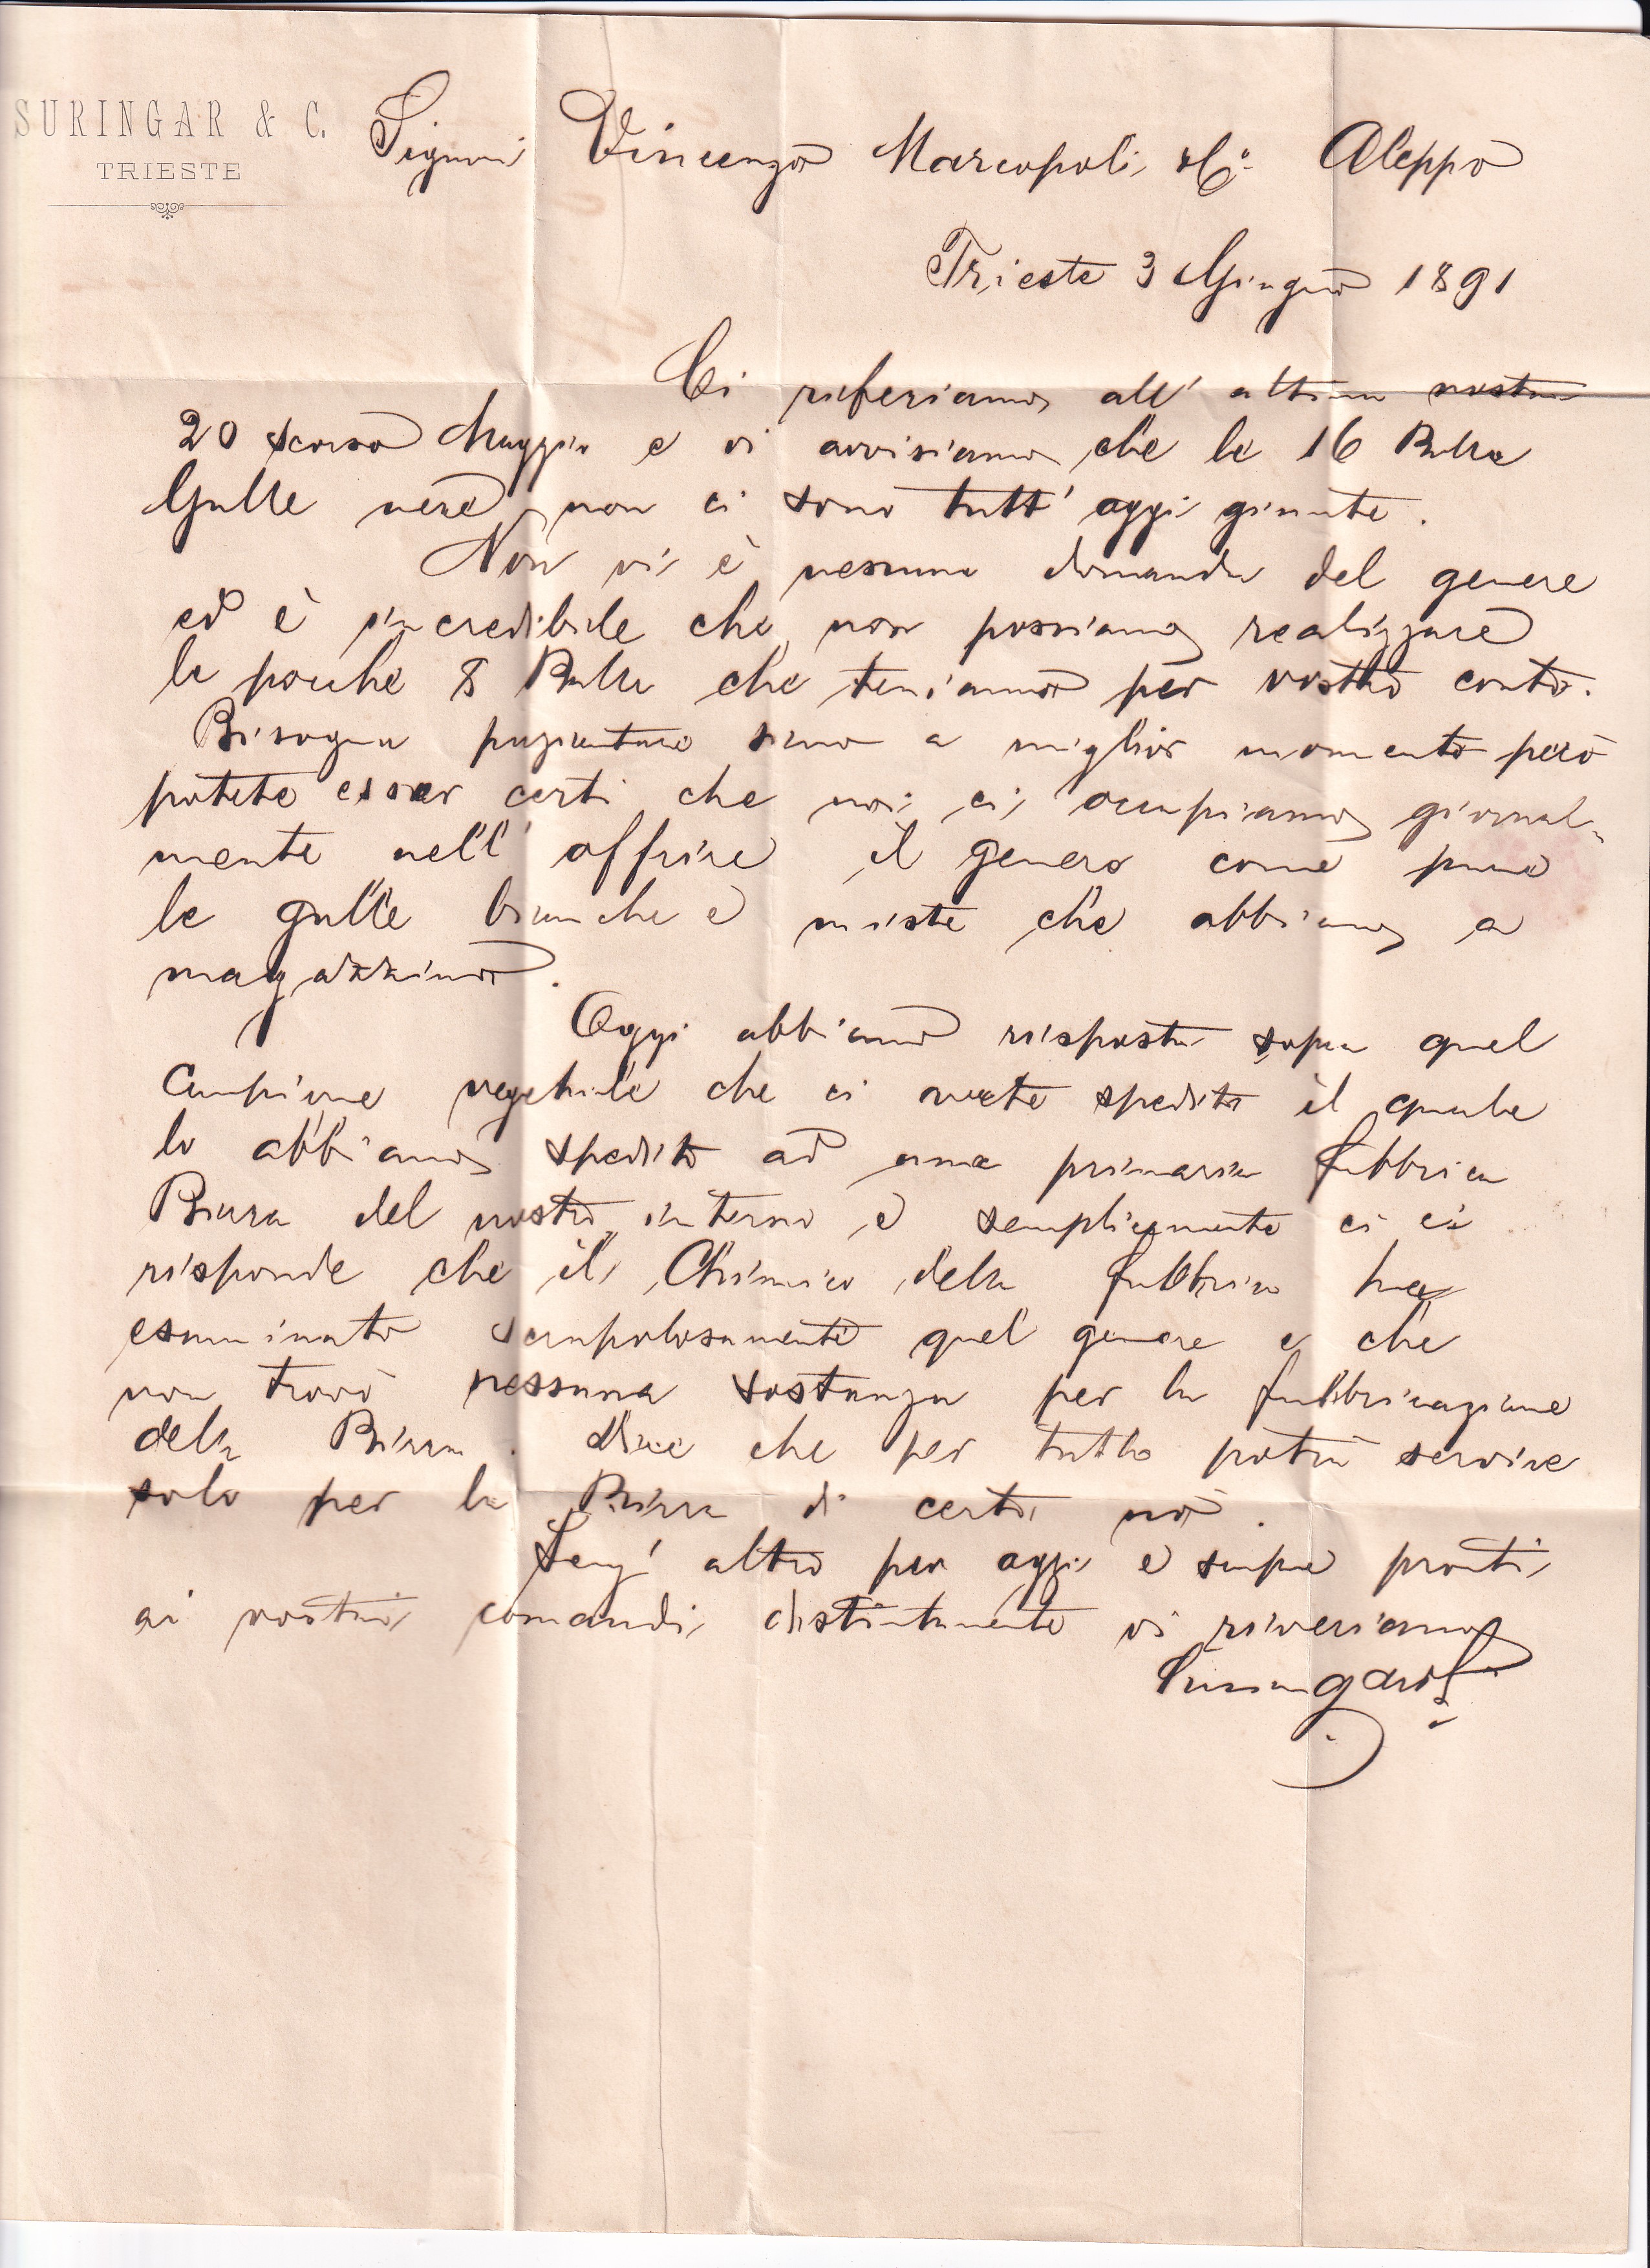 SURINGAR & C.
TRIESTE
Signori Vincenzo Marcopoli & Co. Aleppo
Trieste 3 Giugno 1891
Ci riferiamo all' ultima nostra
20 scorso Maggio e vi avvisiamo che le 16 Balle
Galle nere non ci sono tutt' oggi giunte.
Non vi è nessuna domanda del genere
ed è incredibile che non possiamo realizzare
le poche 8 Balle che teniamo per vostro conto.
Bisogna pazientare sino a miglior momento però
potete esser certi che noi ci occupiamo giornal-
mente nell' offrire il genere come pure
le galle bianche e miste che abbiamo a
magazzino.
Oggi abbiamo risposta sopra quel
Campione vegetale che ci avete spedito il quale
lo abbiamo spedito ad una primaria fabbrica
Birra del nostro interno e semplicemente ci
risponde che il Chimico della fabbrica ha
esaminato scrupolosamente quel genere e che
non trovò nessuna sostanza per la fabbricazione
della Birra. dice che per tutto potrà servire
solo per la Birra di certo nò.
Senz' altro per oggi e sempre pronti
ai vostri comandi, distintamente vi riveriamo
Suringar & C.